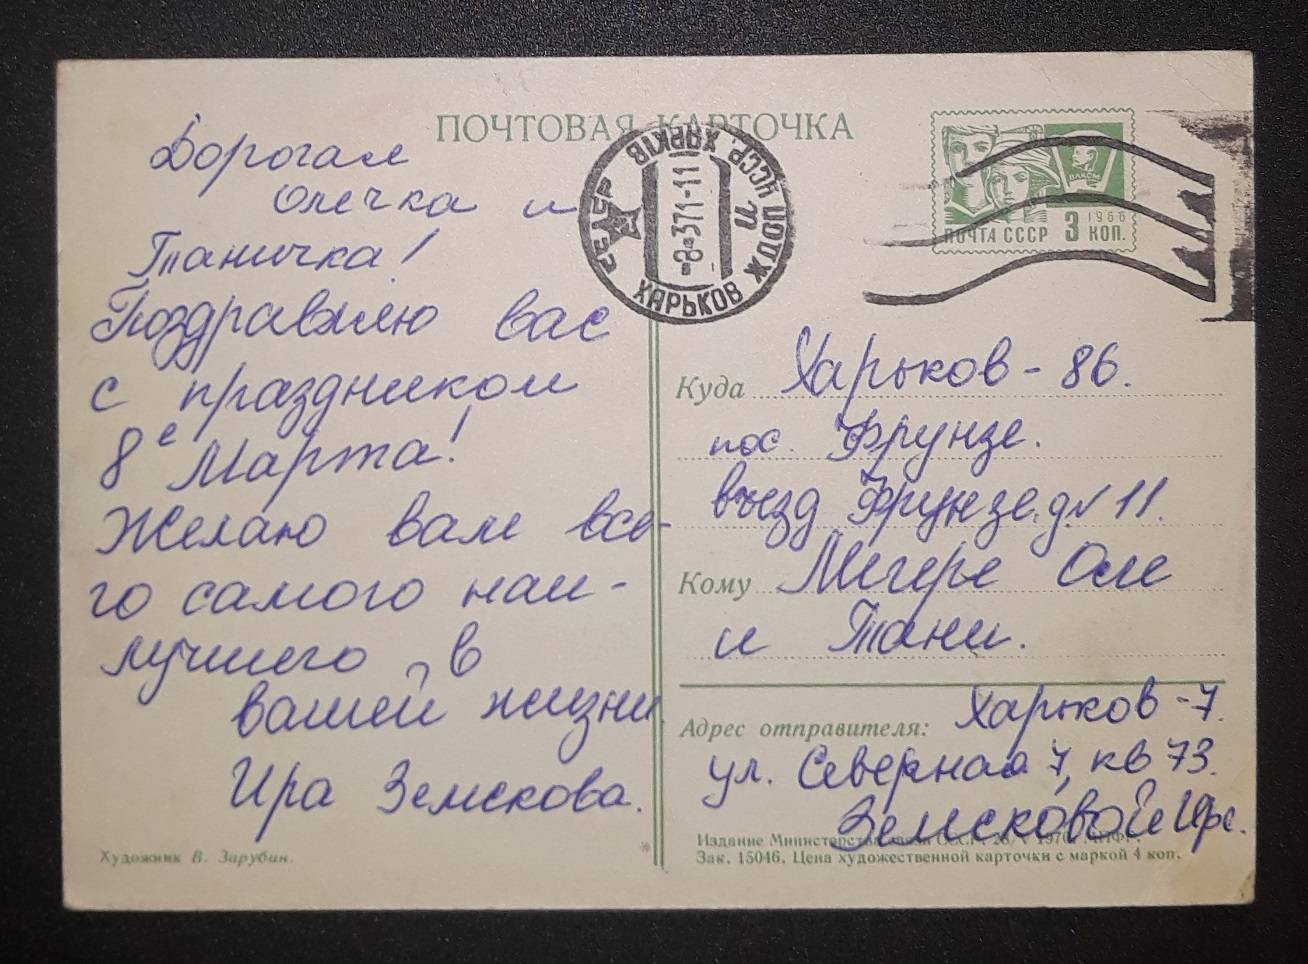 ПОЧТОВАЯ КАРТОЧКА
Дорогая
Олечка и
Таничка!
Поздравляю вас
с праздником
8е Марта!
Желаю вам все-
го самого наи-
лучшего в
вашей жизни
Ира Земскова.
Художник В. Зарубин.
ХАРЬКОВ
УССР. ХАРКІВ
8-3 71-11
ВЛКСМ
1966
ПОЧТА СССР 3 КОП.
Куда Харьков-86.
пос. Фрунзе.
въезд Фрунзе д. 11.
Кому Мегере Оле
и Тани.
Адрес отправителя: Харьков-7.
ул. Северная 7, кв 73.
Земсковой Ире.
Издание Министерства связи СССР.
Зак. 15046. Цена художественной карточки с маркой 4 коп.